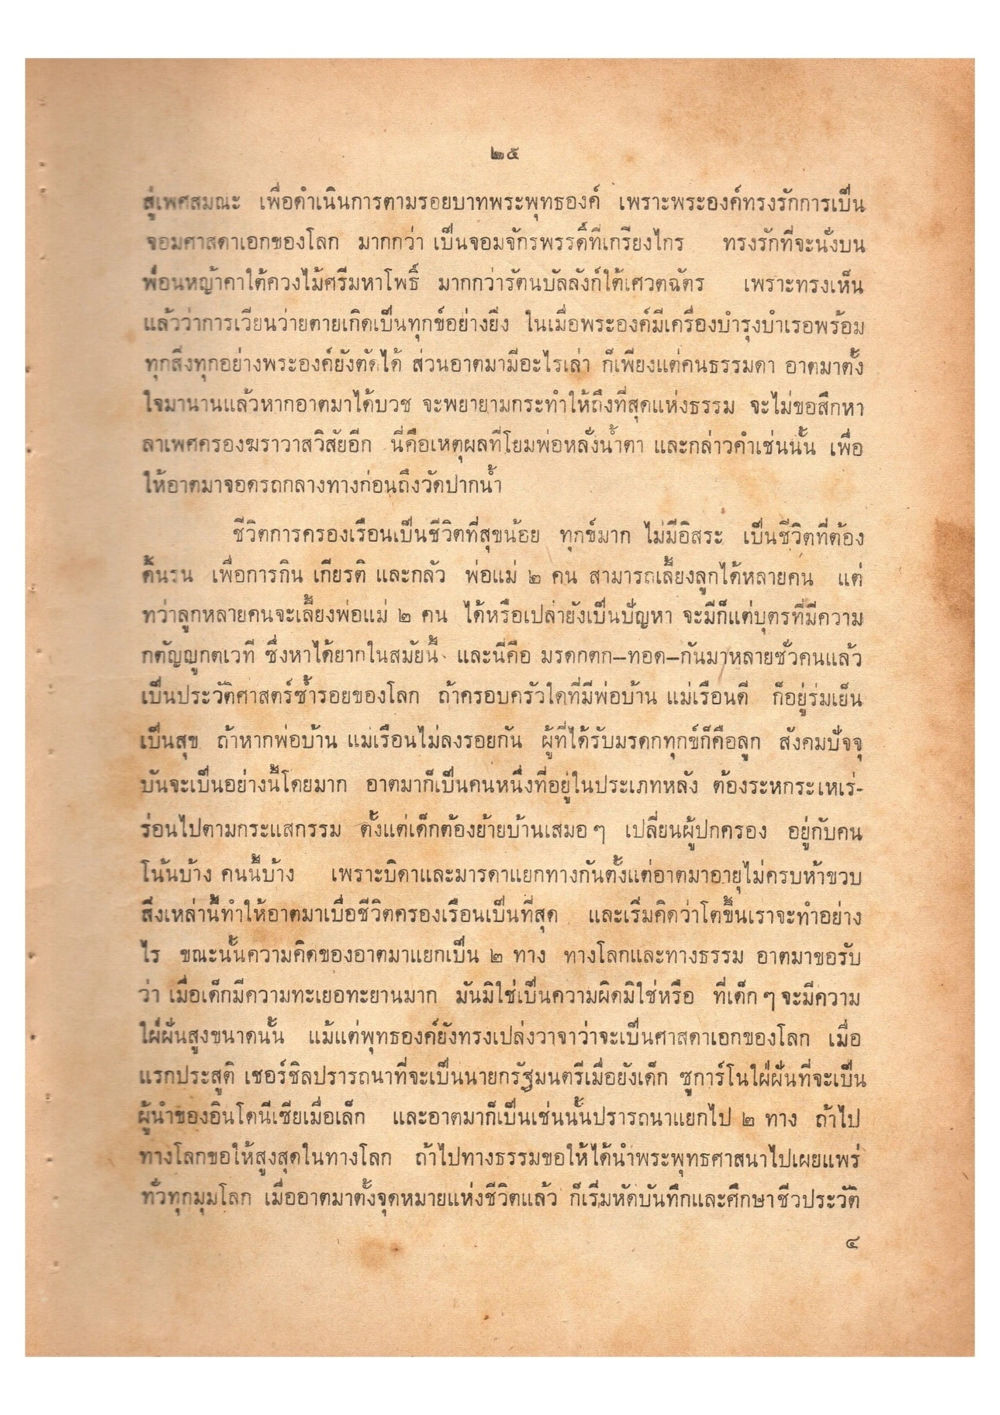 ๒๕
สู่เพศสมณะ เพื่อดำเนินการตามรอยบาทพระพุทธองค์ เพราะพระองค์ทรงรักการเป็น
จอมศาสดาเอกของโลก มากกว่า เป็นจอมจักรพรรดิ์ที่เกรียงไกร ทรงรักที่จะนั่งบน
พื่อนหญ้าคาใต้ควงไม้ศรีมหาโพธิ์ มากกว่ารัตนบัลลังก์ใต้เศวตฉัตร เพราะทรงเห็น
แล้วว่าการเวียนว่ายตายเกิดเป็นทุกข์อย่างยิ่ง ในเมื่อพระองค์มีเครื่องบำรุงบำเรอพร้อม
ทุกสิ่งทุกอย่างพระองค์ยังตัดได้ ส่วนอาตมามีอะไรเล่า ก็เพียงแต่คนธรรมดา อาตมาตั้ง
ใจมานานแล้วหากอาตมาได้บวช จะพยายามกระทำให้ถึงที่สุดแห่งธรรม จะไม่ขอสึกหา
ลาเพศครองฆราวาสวิสัยอีก นี่คือเหตุผลที่โยมพ่อหลั่งน้ำตา และกล่าวคำเช่นนั้น เพื่อ
ให้อาตมาจอดรถกลางทางก่อนถึงวัดปากน้ำ
ชีวิตการครองเรือนเป็นชีวิตที่สุขน้อย ทุกข์มาก ไม่มีอิสระ เป็นชีวิตที่ต้อง
ดิ้นรน เพื่อการกิน เกียรติ และกลัว พ่อแม่ ๒ คน สามารถเลี้ยงลูกได้หลายคน แต่
ทว่าลูกหลายคนจะเลี้ยงพ่อแม่ ๒ คน ได้หรือเปล่ายังเป็นปัญหา จะมีก็แต่บุตรที่มีความ
กตัญญูกตเวที ซึ่งหาได้ยากในสมัยนี้ และนี่คือ มรดกตก–ทอด–กันมาหลายชั่วคนแล้ว
เป็นประวัติศาสตร์ซ้ำรอยของโลก ถ้าครอบครัวใดที่มีพ่อบ้าน แม่เรือนดี ก็อยู่ร่มเย็น
เป็นสุข ถ้าหากพ่อบ้าน แม่เรือนไม่ลงรอยกัน ผู้ที่ได้รับมรดกทุกข์ก็คือลูก สังคมปัจจุ
บันจะเป็นอย่างนี้โดยมาก อาตมาก็เป็นคนหนึ่งที่อยู่ในประเภทหลัง ต้องระหกระเหเร่-
ร่อนไปตามกระแสกรรม ตั้งแต่เด็กต้องย้ายบ้านเสมอๆ เปลี่ยนผู้ปกครอง อยู่กับคน
โน้นบ้าง คนนี้บ้าง เพราะบิดาและมารดาแยกทางกันตั้งแต่อาตมาอายุไม่ครบห้าขวบ
สิ่งเหล่านี้ทำให้อาตมาเบื่อชีวิตครองเรือนเป็นที่สุด และเริ่มคิดว่าโตขึ้นเราจะทำอย่าง
ไร ขณะนั้นความคิดของอาตมาแยกเป็น ๒ ทาง ทางโลกและทางธรรม อาตมาขอรับ
ว่า เมื่อเด็กมีความทะเยอทะยานมาก มันมิใช่เป็นความผิดมิใช่หรือ ที่เด็กๆ จะมีความ
ใฝ่ฝันสูงขนาดนั้น แม้แต่พุทธองค์ยังทรงเปล่งวาจาว่าจะเป็นศาสดาเอกของโลก เมื่อ
แรกประสูติ เชอร์ชิลปรารถนาที่จะเป็นนายกรัฐมนตรีเมื่อยังเด็ก ซูการ์โนใฝ่ฝันที่จะเป็น
ผู้นำของอินโดนีเซียเมื่อเล็ก และอาตมาก็เป็นเช่นนั้นปรารถนาแยกไป ๒ ทาง ถ้าไป
ทางโลกขอให้สูงสุดในทางโลก ถ้าไปทางธรรมขอให้ได้นำพระพุทธศาสนาไปเผยแพร่
ทั่วทุกมุมโลก เมื่ออาตมาตั้งจุดหมายแห่งชีวิตแล้ว ก็เริ่มหัดบันทึกและศึกษาชีวประวัติ
๔